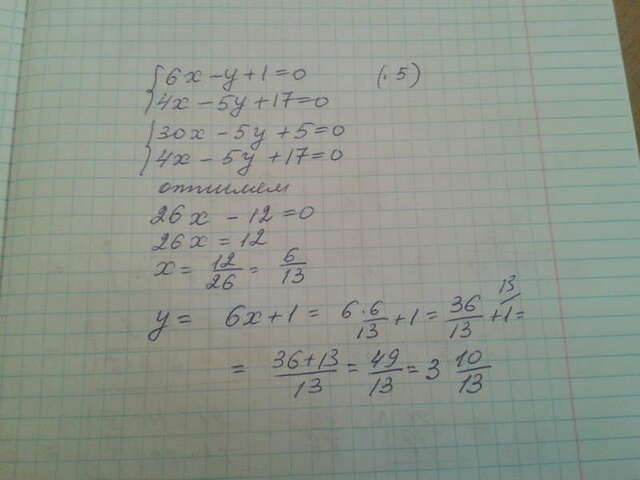 6x - y + 1 = 0 (· 5)
4x - 5y + 17 = 0
30x - 5y + 5 = 0
4x - 5y + 17 = 0
отнимем
26x - 12 = 0
26x = 12
x = 12/26 = 6/13
y = 6x + 1 = 6·6/13 + 1 = 36/13 + 1 13/ =
= 36+13/13 = 49/13 = 3 10/13